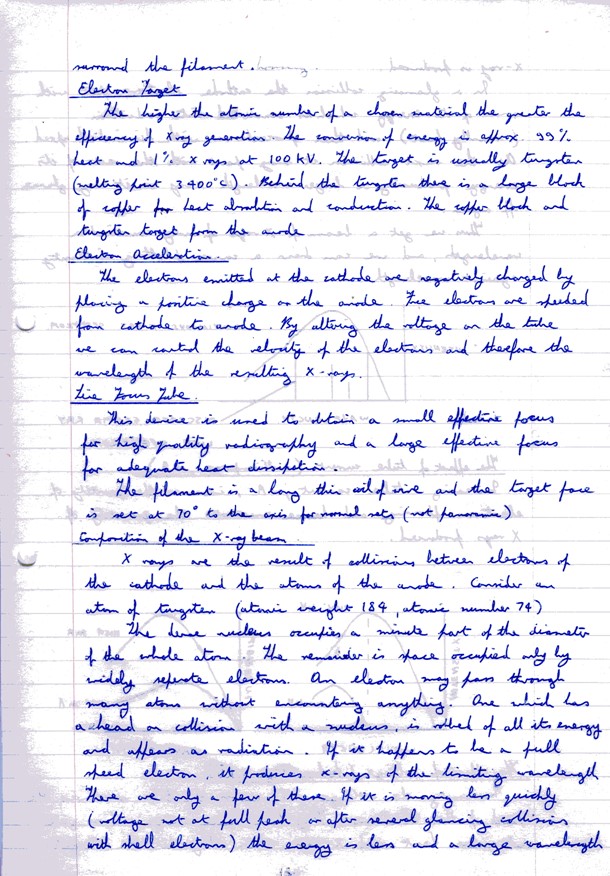 surround the filament.
Electron Target
The higher the atomic number of a chosen material the greater the
efficiency of X ray generation. The conversion of energy is approx. 99%
heat and 1% X rays at 100 kV. The target is usually tungsten
(melting point 3400°C). Behind the tungsten there is a large block
of copper for heat absorbtion and conduction. The copper block and
tungsten target form the anode
Electron Acceleration.
The electrons emitted at the cathode are negatively charged by
placing a positive charge on the anode. The electrons are speeded
from cathode to anode. By altering the voltage on the tube
we can control the velocity of the electrons and therefore the
wavelength of the resulting X-rays.
Line Focus Tube.
This device is used to obtain a small effective focus
for high quality radiography and a large effective focus
for adequate heat dissipation.
The filament is a long thin coil of wire and the target face
is set at 70° to the axis for normal sets (not panoramic)
Composition of the X-ray beam
X rays are the result of collisions between electrons of
the cathode and the atoms of the anode. Consider an
atom of tungsten (atomic weight 184, atomic number 74)
The dense nucleus occupies a minute part of the diameter
of the whole atom. The remainder is space occupied only by
widely seperate electrons. An electron may pass through
many atoms without encountering anything. One which has
a head on collision with a nucleus, is robbed of all its energy
and appears as radiation. If it happens to be a full
speed electron, it produces x-rays of the limiting wavelength
There are only a few of these. If it is moving less quickly
(voltage not at full peak or after several glancing collisions
with shell electrons) the energy is less and a large wavelength